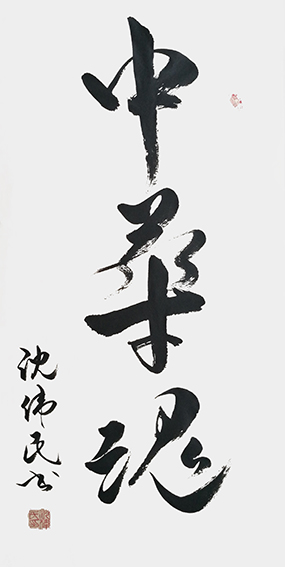 中华魂
沈伟民书